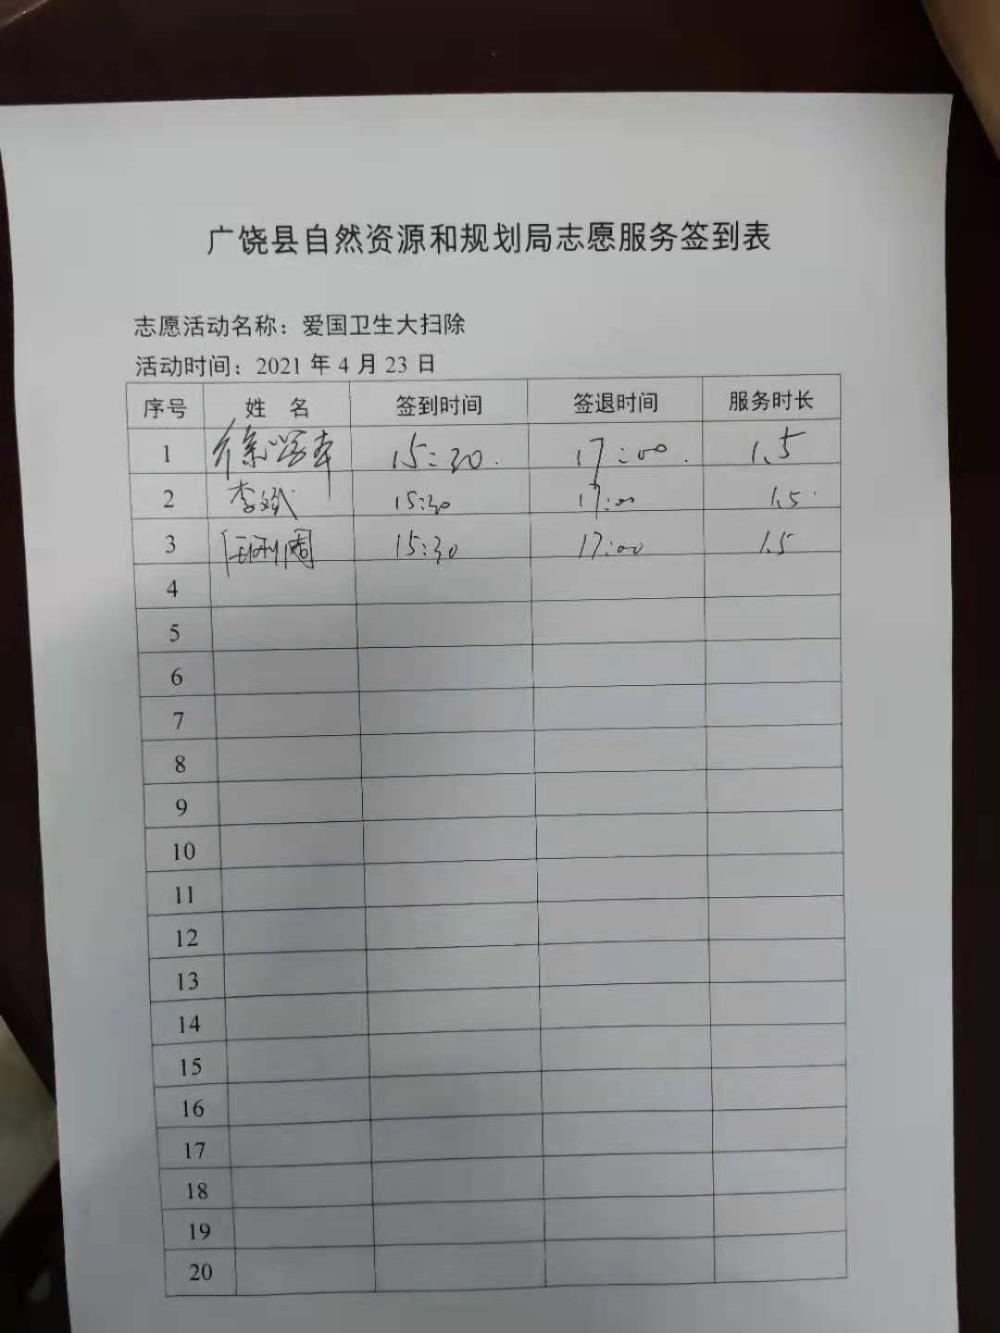 广饶县自然资源和规划局志愿服务签到表
志愿活动名称：爱国卫生大扫除
活动时间：2021 年 4 月 23 日
序号 姓 名 签到时间 签退时间 服务时长
1 15:30. 17:00. 1.5
2 李斌 15:30 17:00 1.5
3 15:30 17:00 1.5
4
5
6
7
8
9
10
11
12
13
14
15
16
17
18
19
20